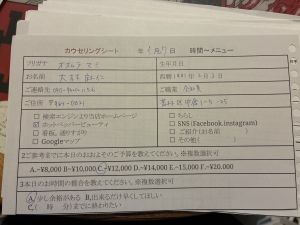 カウセリングシート 年 月 日 時間〜メニュー
フリガナ 生年月日
お名前 西暦 年 3月3日
ご連絡先 ご職業 会社員
ご住所 〒
□ 検索エンジンより当店ホームページ □ ちらし
☑ ホットペッパービューティ □ SNS (Facebook,instagram)
□ 看板、通りがかり □ ご紹介(お名前 )
□ Googleマップ □ その他( )
2ご参考までに本日のおおよそのご予算を教えてください。※複数選択可
A.~¥8,000 B.~¥10,000 C.~¥12,000 D.~¥14,000 E.~¥15,000 F.~¥20.000
3本日のお時間の都合を教えてください。※複数選択可
A.少し余裕がある B,出来るだけ早くしてほしい
C( 時 分)までに終わりたい